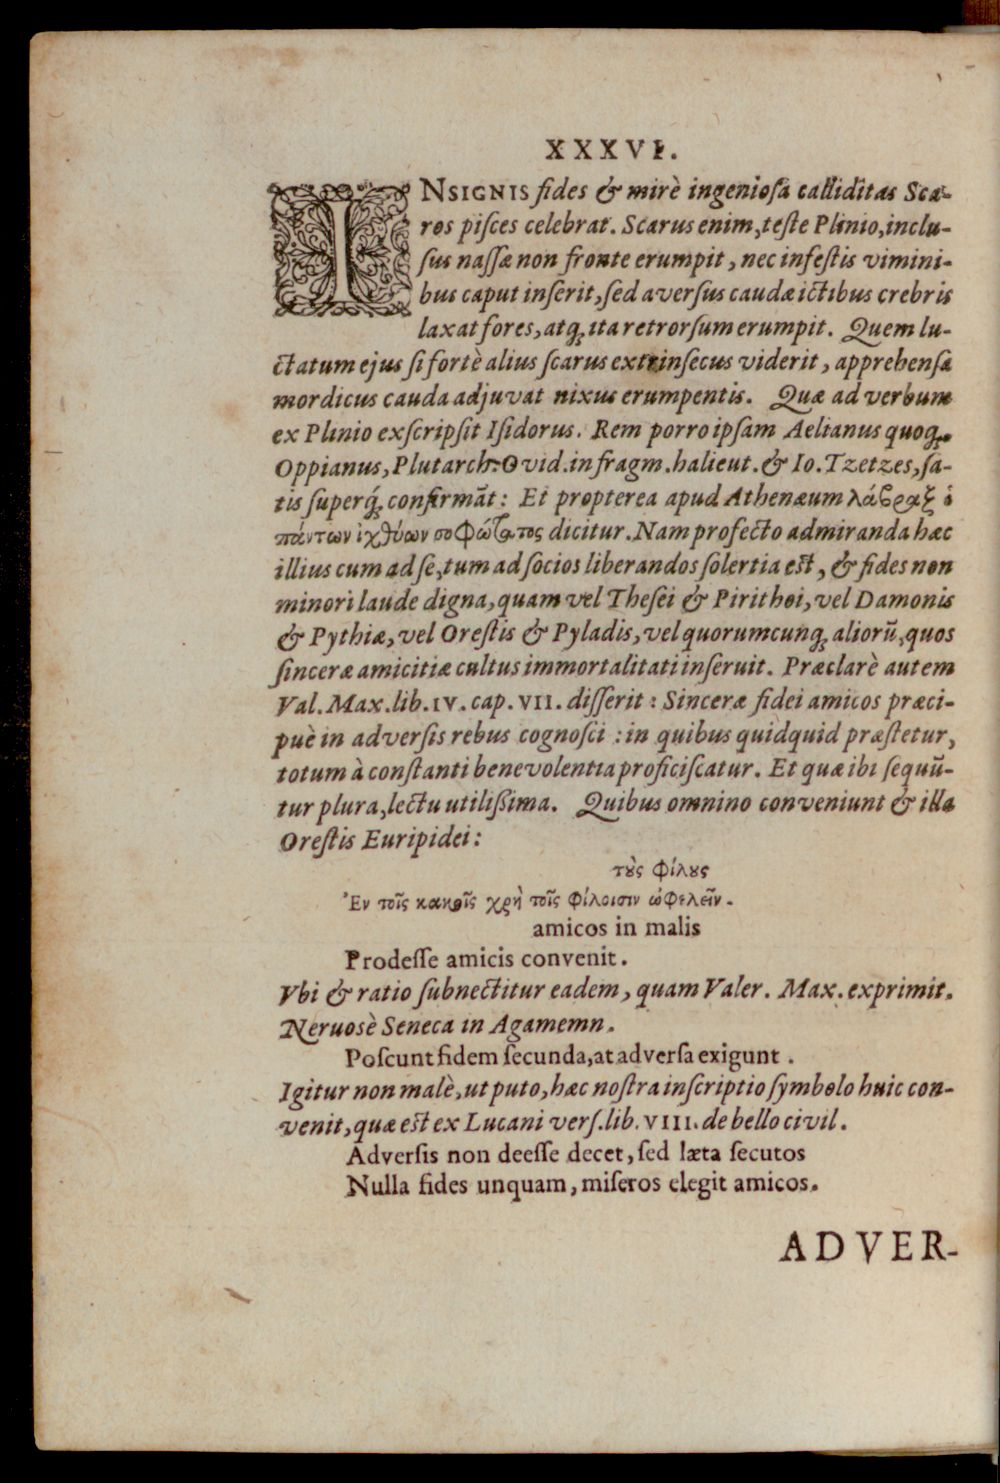 XXXVI.
INSIGNIS fides & mirè ingeniosa calliditas Sca-
ros pisces celebrat. Scarus enim, teste Plinio, inclu-
sus nassæ non fronte erumpit, nec infestis vimini-
bus caput inserit, sed aversus caudæ ictibus crebris
laxat fores, atq; ita retrorsum erumpit. Quem lu-
ctatum ejus si fortè alius scarus extrinsecus viderit, apprehensa
mordicus cauda adjuvat nixus erumpentis. Quæ ad verbum
ex Plinio exscripsit Isidorus. Rem porro ipsam Aelianus quoq;
Oppianus, Plutarch. Ovid. in fragm. halieut. & Io. Tzetzes, sa-
tis superq́; confirmãt: Et propterea apud Athenæum λάβραξ ὁ
πάντων ἰχθύων σοφώτατος dicitur. Nam profecto admiranda hæc
illius cum ad se, tum ad socios liberandos solertia est, & fides non
minori laude digna, quam vel Thesei & Pirithoi, vel Damonis
& Pythiæ, vel Orestis & Pyladis, vel quorumcunq; aliorũ, quos
sinceræ amicitiæ cultus immortalitati inseruit. Præclarè autem
Val. Max. lib. IV. cap. VII. disserit: Sinceræ fidei amicos præci-
puè in adversis rebus cognosci: in quibus quidquid præstetur,
totum à constanti benevolentia proficiscatur. Et quæ ibi sequũ-
tur plura, lectu utilissima. Quibus omnino conveniunt & illa
Orestis Euripidei:
τοὺς φίλους
Ἐν τοῖς κακοῖς χρὴ τοῖς φίλοισιν ὠφελεῖν.
amicos in malis
Prodesse amicis convenit.
Vbi & ratio subnectitur eadem, quam Valer. Max. exprimit.
Neruosè Seneca in Agamemn.
Poscunt fidem secunda, at adversa exigunt.
Igitur non malè, ut puto, hæc nostra inscriptio symbolo huic con-
venit, quæ est ex Lucani vers. lib. VIII. de bello civil.
Adversis non deesse decet, sed læta secutos
Nulla fides unquam, miseros elegit amicos.
ADVER-